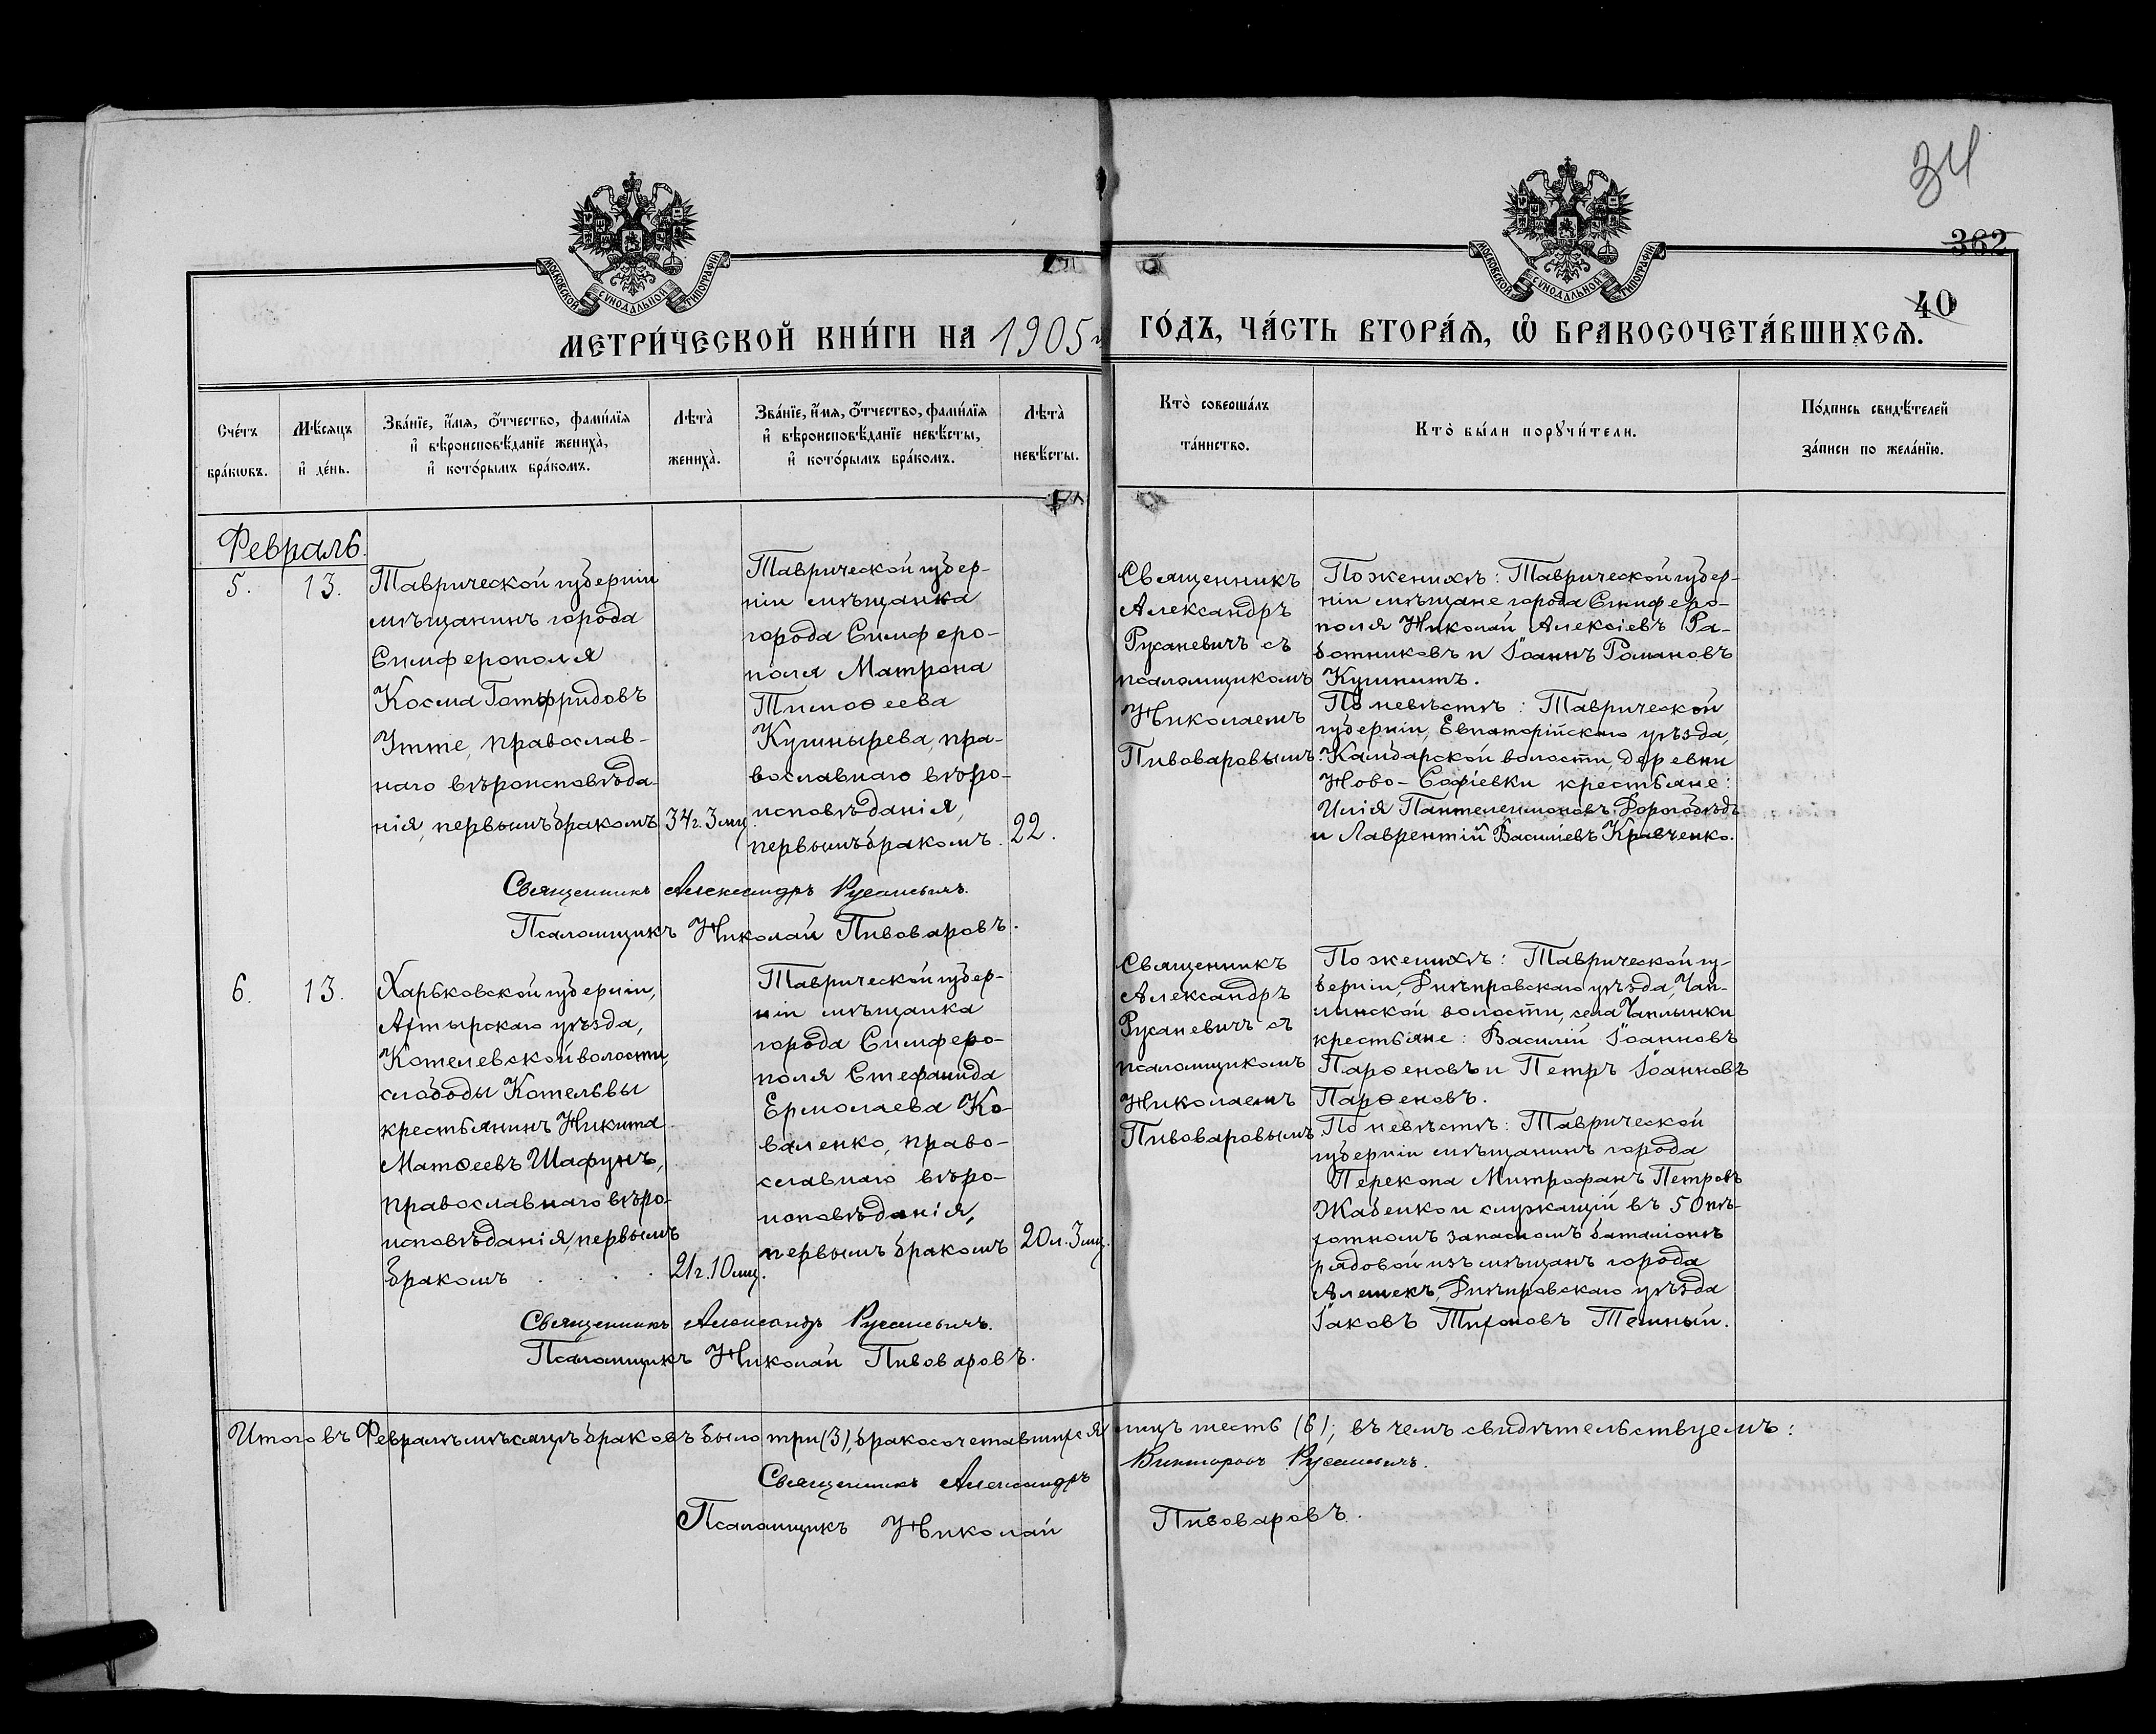 34
362
40
МОСКОВСКОЙ СѴНОДАЛЬНОЙ ТИПОГРАФІИ
МОСКОВСКОЙ СѴНОДАЛЬНОЙ ТИПОГРАФІИ
МЕТРИ́ЧЕСКОЙ КНИ́ГИ НА 1905 й ГО́ДЪ, ЧА́СТЬ ВТОРА́Ѧ, Ѽ БРАКОСОЧЕТА́ВШИХСѦ.
Сче́тъ
бра́кѡвъ.
Мѣ́сѧцъ
и҆ де́нь.
Зва́нїе, и҆́мѧ, ѻ҆́тчество, фами́лїѧ
и҆ вѣроисповѣ́данїе жениха̀,
и҆ кото́рымъ бра́комъ.
Лѣта̀
жениха̀.
Зва́нїе, и҆́мѧ, ѻ҆́тчество, фами́лїѧ
и҆ вѣроисповѣ́данїе невѣ́сты,
и҆ кото́рымъ бра́комъ.
Лѣта̀
невѣ́сты.
Кто̀ соверша́лъ
та́инство.
Кто̀ бы́ли порꙋчи́тели.
По́дпись свидѣ́телей
за́писи по жела́нїю.
Февраль.
5.
13.
Таврической губерніи
мѣщанинъ города
Симферополя
Косма Готфридовъ
Утте, православ-
наго вѣроисповѣда-
нія, первымъ бракомъ
34 г. 3 мц
Таврической губер-
ніи мѣщанка
города Симферо-
поля Матрона
Тимоѳеева
Кушнырева, пра-
вославнаго вѣро-
исповѣданія,
первымъ бракомъ.
22.
Священникъ
Александръ
Русаневичъ съ
псаломщикомъ
Николаемъ
Пивоваровымъ.
По женихѣ: Таврической губер-
ніи мѣщане города Симферо-
поля Николай Алексіевъ Ра-
ботниковъ и Іоаннъ Романовъ
Кушниръ.
По невѣстѣ: Таврической
губерніи, Евпаторійскаго уѣзда,
Камбарской волости, деревни
Ново-Софіевки крестьяне:
Илія Пантелеимоновъ Дорогобѣдъ
и Лаврентій Василіевъ Кравченко.
Священникъ Александръ Русаневичъ.
Псаломщикъ Николай Пивоваровъ.
6.
13.
Харьковской губерніи,
Ахтырскаго уѣзда,
Котелевской волости,
слободы Котельвы
крестьянинъ Никита
Матѳеевъ Шафунъ,
православнаго вѣро-
исповѣданія, первымъ
бракомъ . . . .
21 г. 10 мц.
Таврической губер-
ніи мѣщанка
города Симферо-
поля Стефанида
Ермолаева Ко-
валенко, право-
славнаго вѣро-
исповѣданія,
первымъ бракомъ
20 л. 3 мц.
Священникъ
Александръ
Русаневичъ съ
псаломщикомъ
Николаемъ
Пивоваровымъ.
По женихѣ: Таврической гу-
берніи, Днѣпровскаго уѣзда, Чап-
линской волости, села Чаплынки
крестьяне: Василій Іоанновъ
Парѳеновъ и Петръ Іоанновъ
Парѳеновъ.
По невѣстѣ: Таврической
губерніи мѣщанинъ города
Перекопа Митрофанъ Петровъ
Жабенко и служащій въ 50 пѣ-
хотномъ запасномъ баталіонѣ
рядовой изъ мѣщанъ города
Алешекъ, Днѣпровскаго уѣзда
Іаковъ Тихоновъ Темный.
Священникъ Александръ Русаневичъ.
Псаломщикъ Николай Пивоваровъ.
Итого въ Февралѣ мѣсяцѣ браковъ было три (3), бракосочетавшихся лицъ шесть (6); въ чемъ свидѣтельствуемъ:
Священникъ Александръ Викторовъ Русаневичъ.
Псаломщикъ Николай Пивоваровъ.